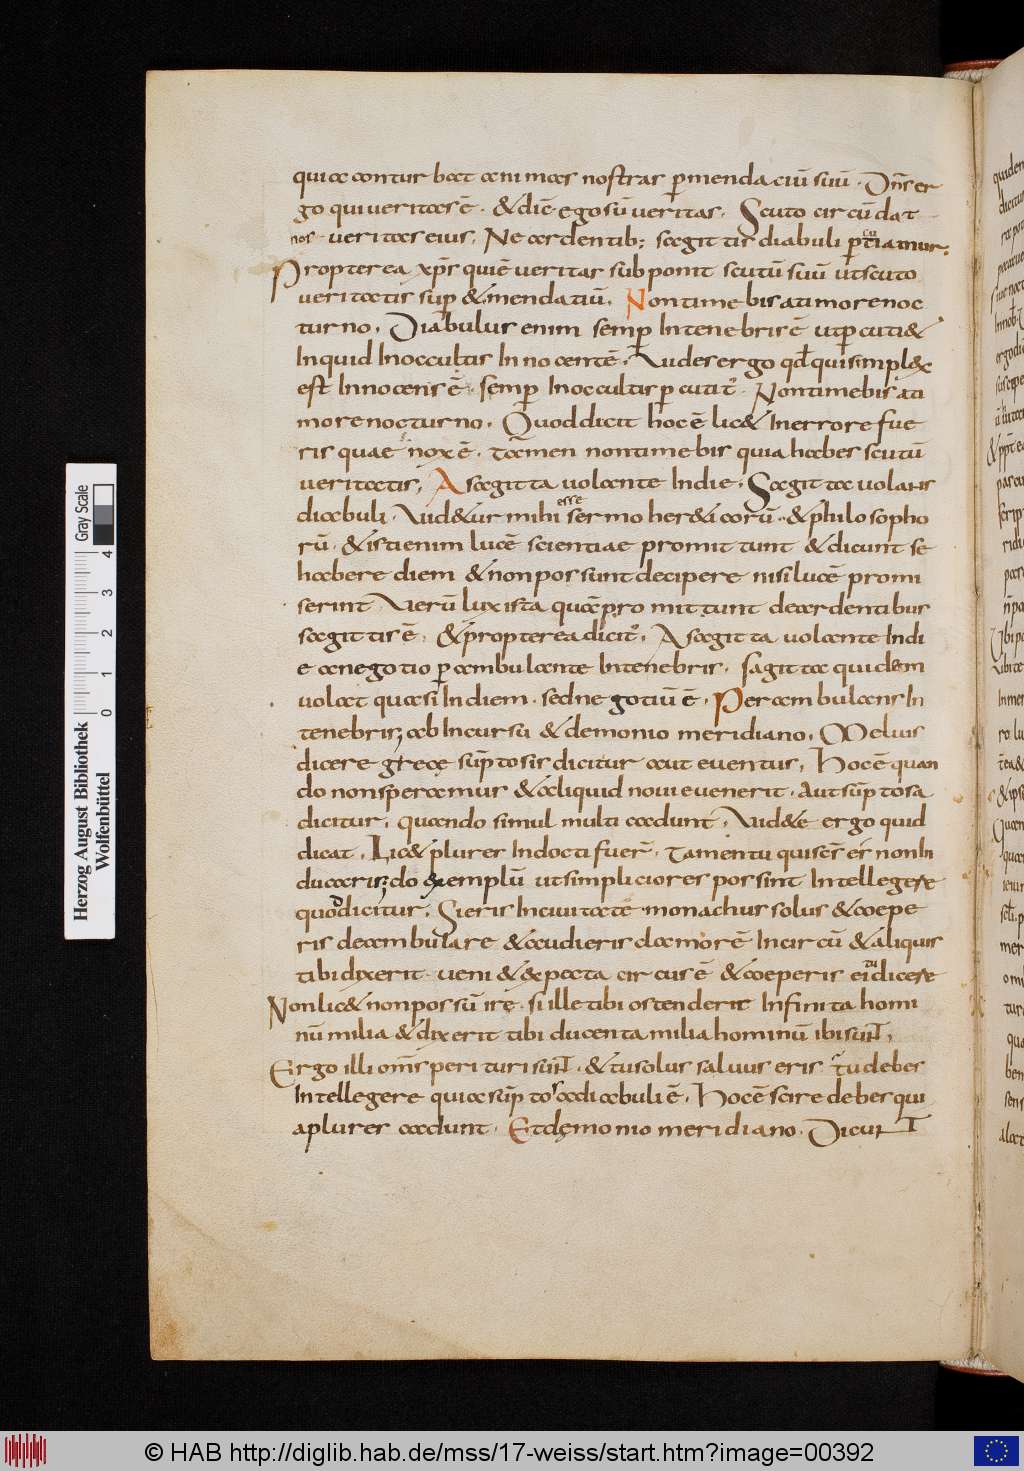 quiacontur bat animas nostras ꝑmendaciū suū. Dn̄s er
go qui ueritas ē. & diē ego sū ueritas. Scuto circūdat
nos ueritas eius. Ne ardentib; sagittis diaboli ꝑcutiamur.
Propterea xp̄s qui ē ueritas subponit scutū suū ut scuto
ueritatis sup&mendatiū. Non timebis a timore noc
turno. Diabulus enim semꝑ In tenebris ē ut ꝑcutiat
Inquid In occultis Innocentē. Uides ergo qđ qui simplex
est Innocens ē semꝑ In occultis ꝑcutit᷒. Non timebis a ti
more nocturno. Quod dicit hoc ē lic& In errore fue
ris quae nox ē. tamen non timebis quia habes scutū
ueritatis. A sagitta uolante In die. Sagitta uolans
diabuli. Uid&ur mihi esse sermo her&icorū. & philosopho
rū. & isti enim lucē scientiae promittunt & dicunt se
habere diem & non possunt decipere nisi lucē promi
serint. Uerū lux ista quā promittunt de ardentibus
sagittis ē. & propterea dicit᷒. A sagitta uolante In di
e a negotio ꝑambulante In tenebris. sagitta quidem
uolat quasi In diem. sed negotiū ē. Perambulans In
tenebris; ab Incursu & demonio meridiano. Melius
dicere grece sūptosis dicitur aut euentus. Hoc ē quan
do non speramus & aliquid noui euenerit. Aut sūptosa
dicitur. quando simul multi cadunt. Uid&e ergo quid
dicat. Lic& plures Indocti fuer̄. tamen tu qui scīs eī non In
ducaris; do exemplū ut simpliciores possint Intellegere
quod dicitur. Si eris In ciuitate monachus solus & coepe
ris deambulare & audieris clamorē In circū & aliquis
tibi dixerit. ueni & expecta circus ē & coeperis ei tu dicere
Non lic& non possū ire. si ille tibi ostenderit Infinita homi
nū milia & dixerit tibi ducenta milia hominū ibi sūnt.
Ergo illi om̄s perituri sūnt. & tu solus saluus eris tu debes
Intellegere quia sūptosa diabuli ē. Hoc ē scire debes qui
a plures cadunt. Et demonio meridiano. Dicunt
Herzog August Bibliothek
Wolfenbüttel
Gray Scale
0 1 2 3 4
© HAB http://diglib.hab.de/mss/17-weiss/start.htm?image=00392